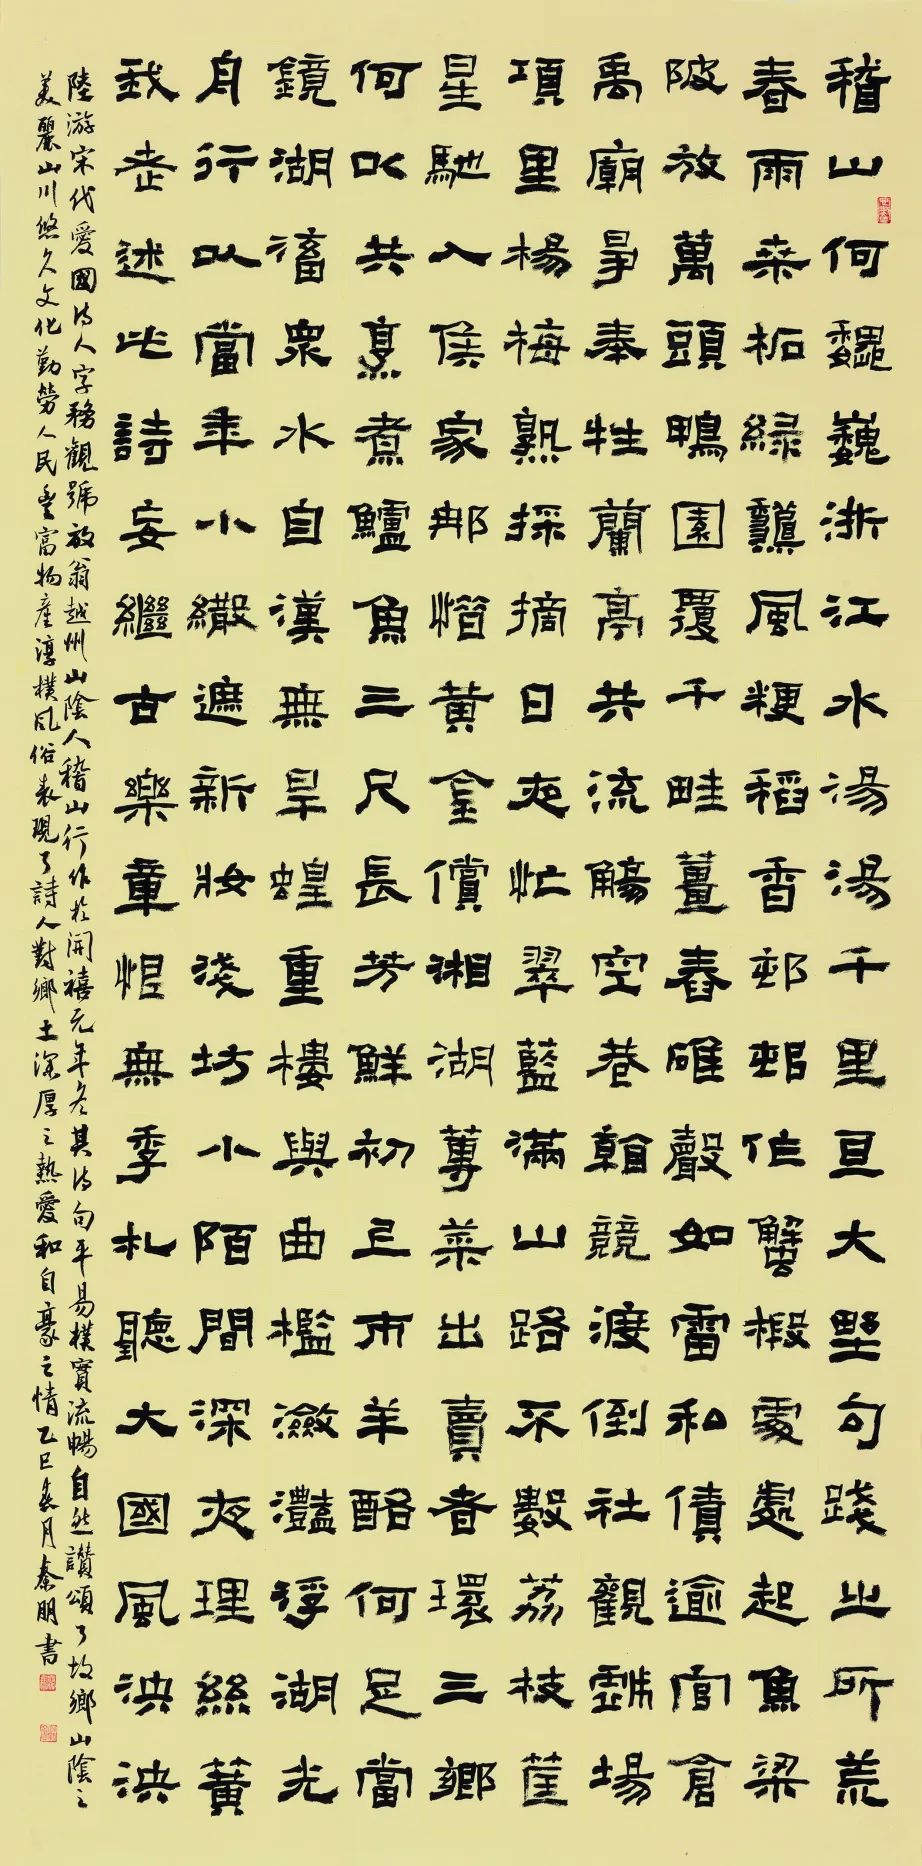 稽山何巍巍浙江水湯湯千里亘大野句踐之所荒
春雨桑柘綠龝風粳稻香邨邨作蟹椴處處起魚梁
陂放萬頭鴨園覆千畦薑舂碓聲如雷私債逾官倉
禹廟爭奉牲蘭亭共流觴空巷看競渡倒社觀戲場
項里楊梅熟採摘日夜忙翠藍滿山路不數荔枝筐
星馳入侯家那惜黃金償湘湖蓴菜出賣者環三鄉
何以共烹煮鱸魚三尺長芳鮮初上市羊酪何足當
鏡湖滀衆水自漢無旱蝗重樓與曲檻瀲灩浮湖光
舟行以當車小繖遮新妝淺坊小陌間深夜理絲簧
我老述此詩妄繼古樂章恨無季札聽大國風泱泱
陸游宋代愛國詩人字務觀號放翁越州山陰人稽山行作於開禧元年冬其詩句平易樸實流暢自然讚頌了故鄉山陰之
美麗山川悠久文化勤勞人民豐富物產淳樸風俗表現了詩人對鄉土深厚之熱愛和自豪之情乙巳月秦朋書